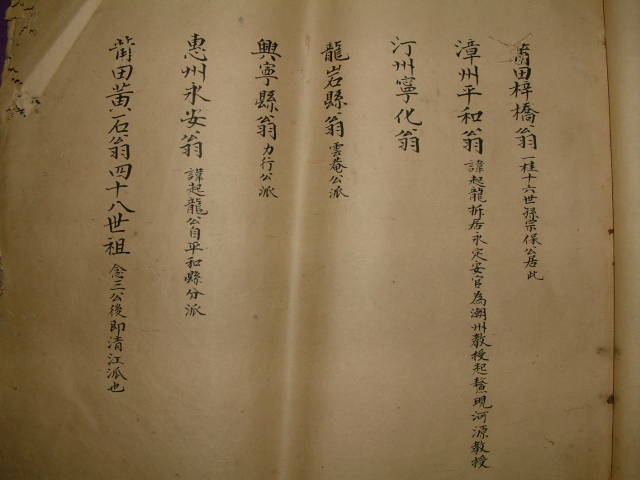 莆田梓橋翁 一桂十六世孫宗保公居此
漳州平和翁 諱起龍拆居永定安官為潮州教授起鰲現河源教授
汀州寧化翁
龍岩縣翁 雲菴公派
興寧縣翁 力行公派
惠州永安翁 諱起龍公自平和縣分派
莆田黄石翁四十八世祖 念三公後即清江派也